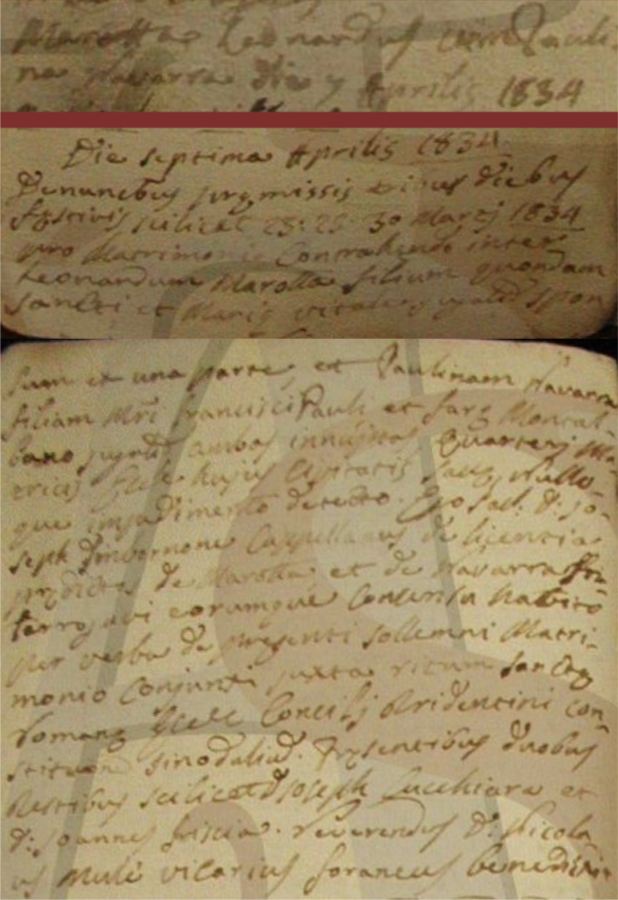 Marotta Leonardus cum Pauli-
na Navarra die 7 Aprilis 1834
Die septima Aprilis 1834.
Denunctibus pręmissis tribus diebus
festivis scilicet 23: 25: 30 Martij 1834
pro Matrimonio Contrahendo inter
Leonardum Marotta filium quondam
Sancti et Marię Vitale jugalium spon
sum ex una parte, et Paulinam Navarra
filiam Mri Francisci Pauli et Sarę Montal-
bano jugalium ambos innuptos Quarterij Ma-
tricis Huius Civitatis Saccę, Nullo-
que impedimento detecto. Ego Sac. D. Jo-
seph Cappellanus de licentia
prędictos de Marotta et de Navarra In-
terrogavi eorumque Consensu habito
per verba de presenti sollemni Matri-
monio Conjunxi juxta ritum Sanctę
Romanę Ecclę Concilij Tridentini con-
stitutionum sinodalium. Pręsentibus duobus
testibus scilicet D. Joseph Cucchiara et
D: Joannes Friscia. Reverendus D: Nicola
us Mulè vicarius foraneus